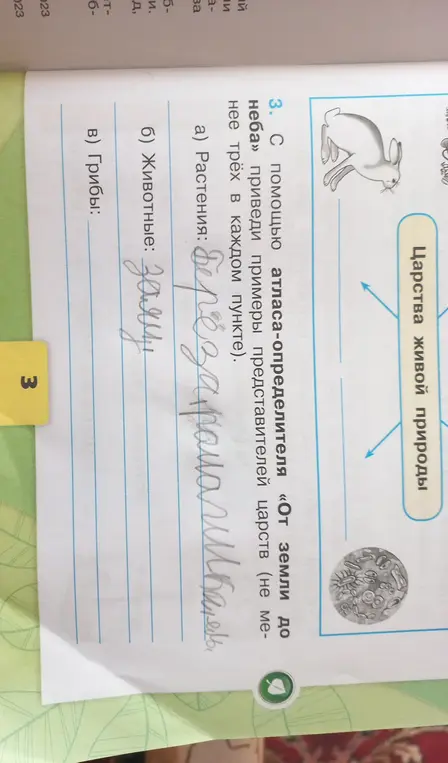 Царства живой природы
3. С помощью атласа-определителя «От земли до
неба» приведи примеры представителей царств (не ме-
нее трёх в каждом пункте).
а) Растения: берёза рома
б) Животные: заяц
в) Грибы:
3